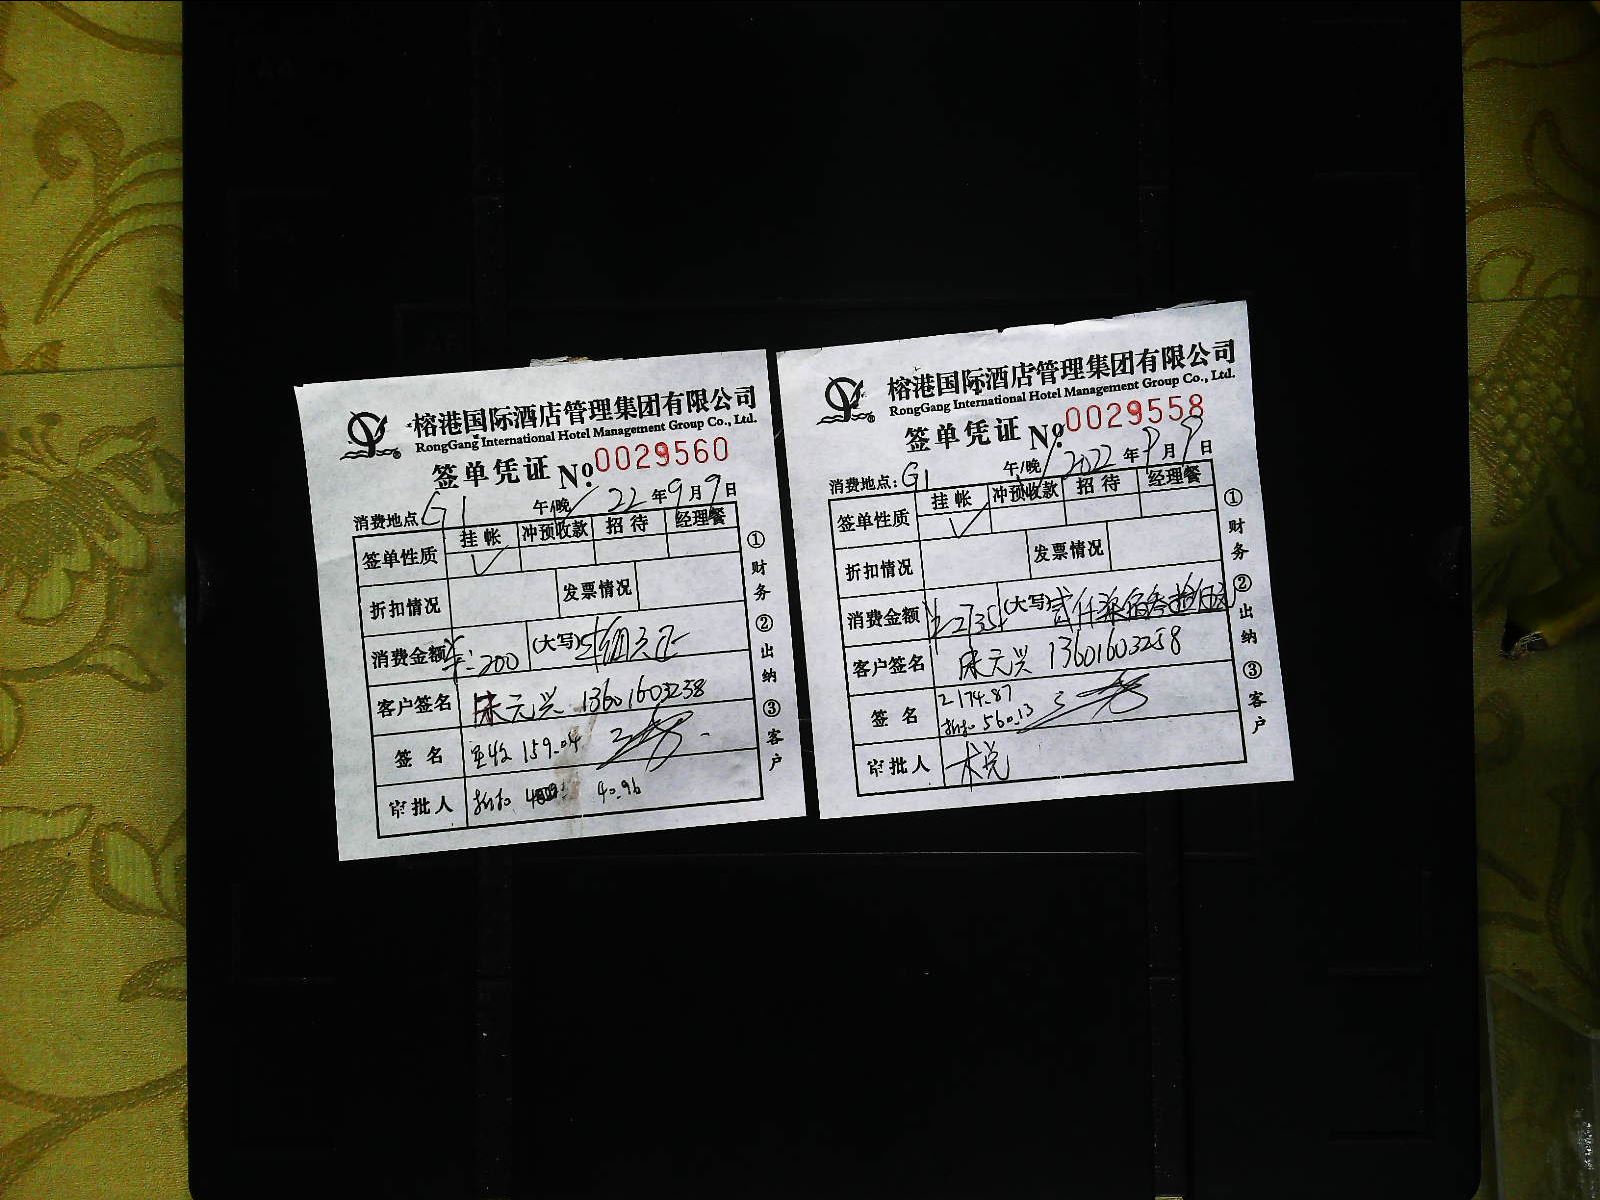 榕港国际酒店管理集团有限公司
RongGang International Hotel Management Group Co., Ltd.
签单凭证 No: 0029560
消费地点 G1 午/晚 22年9月9日
签单性质 挂帐 冲预收款 招待 经理餐
✓
折扣情况 发票情况
消费金额 ¥:200 (大写)
客户签名 宋元兴 13601603238
签名 159.04
审批人 折扣 40.96
①财务 ②出纳 ③客户
榕港国际酒店管理集团有限公司
RongGang International Hotel Management Group Co., Ltd.
签单凭证 No: 0029558
消费地点: G1 午/晚 2022年9月9日
签单性质 挂帐 冲预收款 招待 经理餐
✓
折扣情况 发票情况
消费金额 ¥2735 (大写)贰仟柒佰叁拾伍元
客户签名 宋元兴 13601603238
签名 2174.87
折扣 560.13
审批人
①财务 ②出纳 ③客户